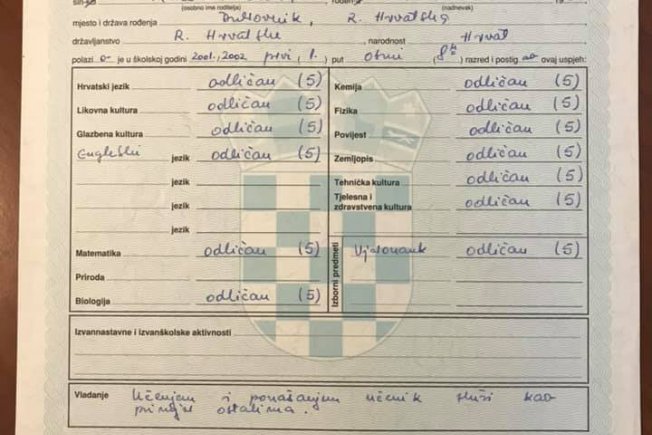 (osobno ime roditelja) (nadnevak)
mjesto i država rođenja Dubrovnik, R. Hrvatska
državljanstvo R. Hrvatske narodnost Hrvat
polazi o- je u školskoj godini 2001., 2002 prvi (1.) put osmi (8.) razred i postig ao ovaj uspjeh:
Hrvatski jezik odličan (5) Kemija odličan (5)
Likovna kultura odličan (5) Fizika odličan (5)
Glazbena kultura odličan (5) Povijest odličan (5)
Engleski jezik odličan (5) Zemljopis odličan (5)
jezik Tehnička kultura odličan (5)
jezik Tjelesna i zdravstvena kultura odličan (5)
jezik
Matematika odličan (5) Izborni predmeti Vjeronauk odličan (5)
Priroda
Biologija odličan (5)
Izvannastavne i izvanškolske aktivnosti
Vladanje Učenjem i ponašanjem učenik služi kao
primjer ostalima.